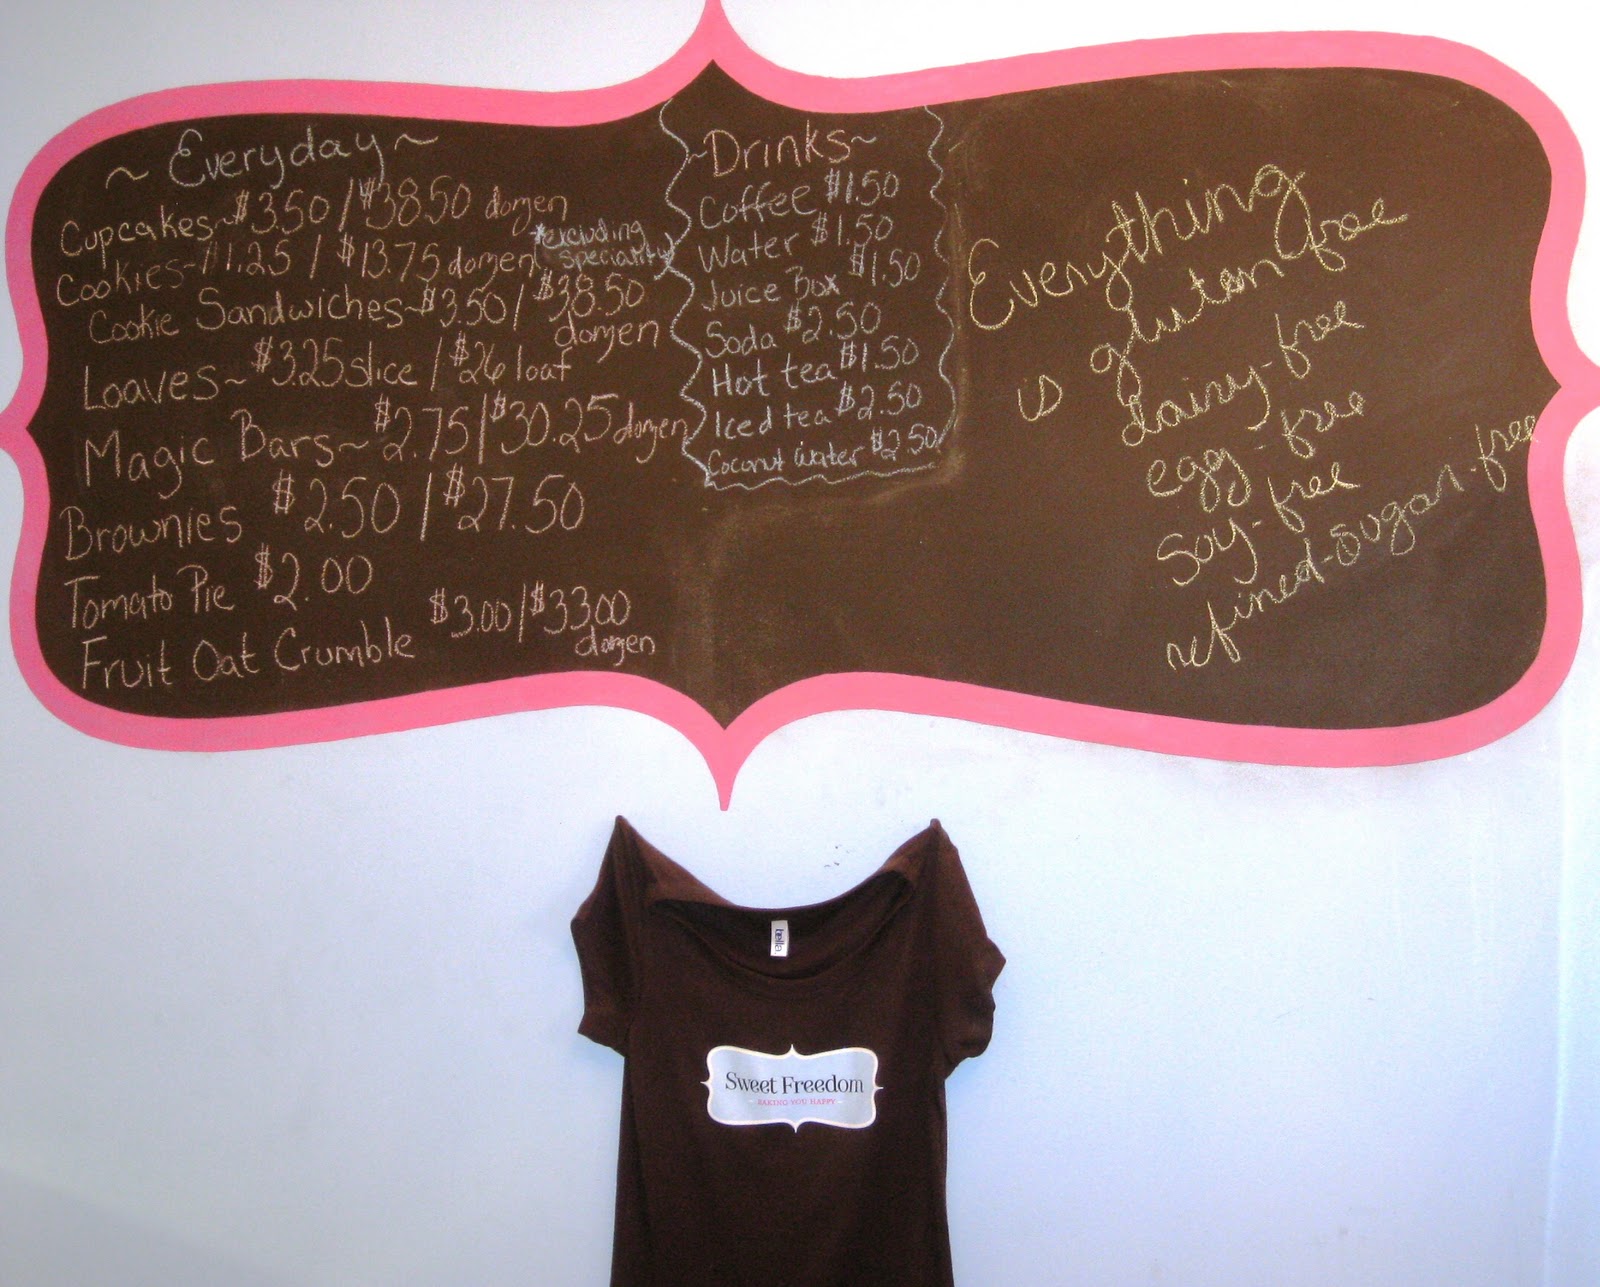 ~ Everyday ~
Cupcakes ~ $3.50 / $38.50 dozen
Cookies ~ $1.25 / $13.75 dozen (*excluding speciality)
Cookie Sandwiches ~ $3.50 / $38.50 dozen
Loaves ~ $3.25 slice / $26 loaf
Magic Bars ~ $2.75 / $30.25 dozen
Brownies $2.50 / $27.50
Tomato Pie $2.00
Fruit Oat Crumble $3.00 / $33.00 dozen
~ Drinks ~
Coffee $1.50
Water $1.50
Juice Box $1.50
Soda $2.50
Hot tea $1.50
Iced tea $2.50
Coconut Water $2.50
Everything
is gluten free
dairy-free
egg-free
Soy-free
refined-sugar-free
bella
Sweet Freedom
BAKING YOU HAPPY